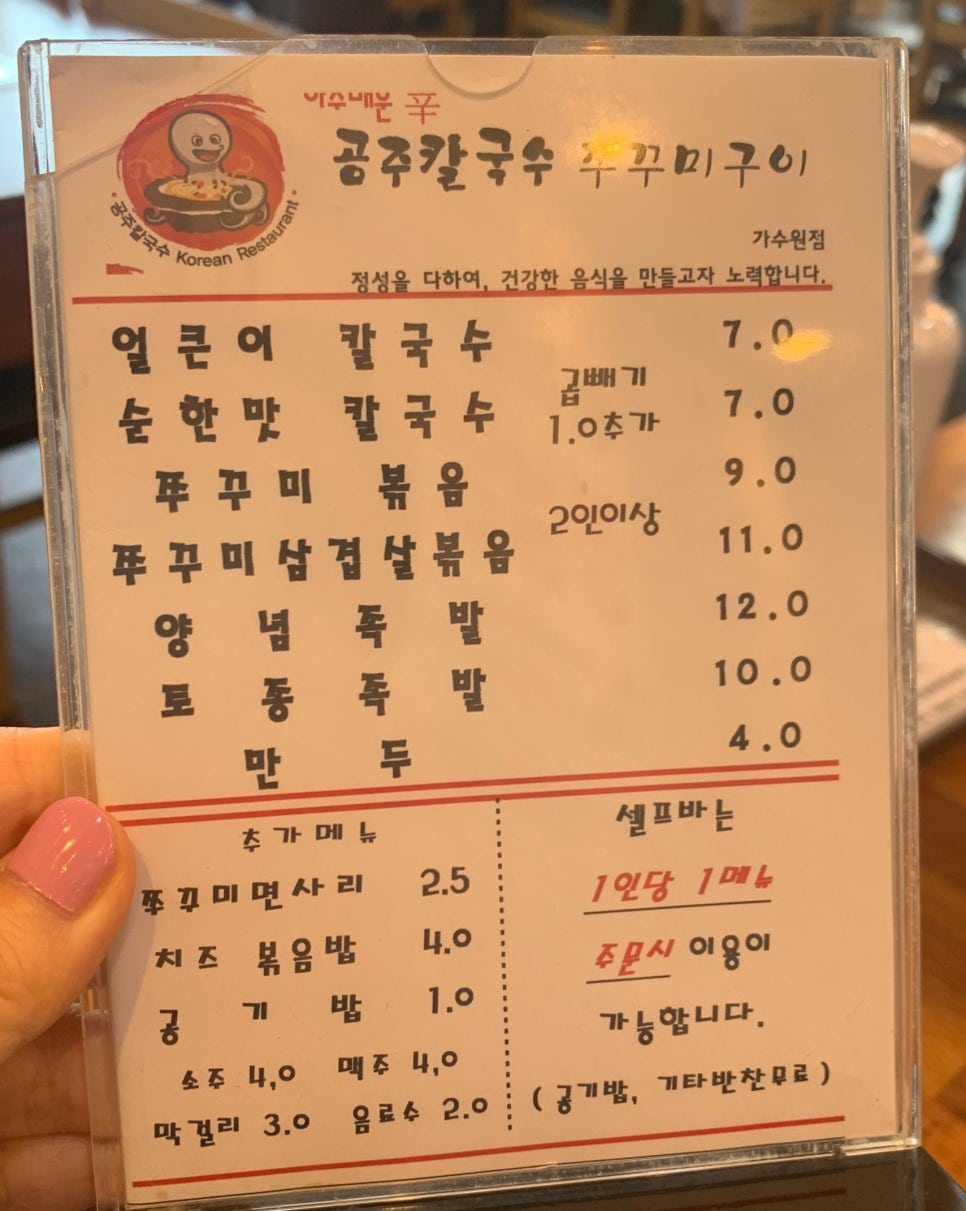 아주매운 辛
공주칼국수 쭈꾸미구이
공주칼국수 Korean Restaurant
가수원점
정성을 다하여, 건강한 음식을 만들고자 노력합니다.
얼큰이 칼국수 7.0
순한맛 칼국수 7.0
곱빼기
1.0추가
쭈꾸미 볶음 9.0
쭈꾸미삼겹살볶음 11.0
2인이상
양념족발 12.0
토종족발 10.0
만두 4.0
추가메뉴
쭈꾸미면사리 2.5
치즈 볶음밥 4.0
공기밥 1.0
소주 4,0 맥주 4,0
막걸리 3.0 음료수 2.0
셀프바는
1인당 1메뉴
주문시 이용이
가능합니다.
(공기밥, 기타반찬무료)